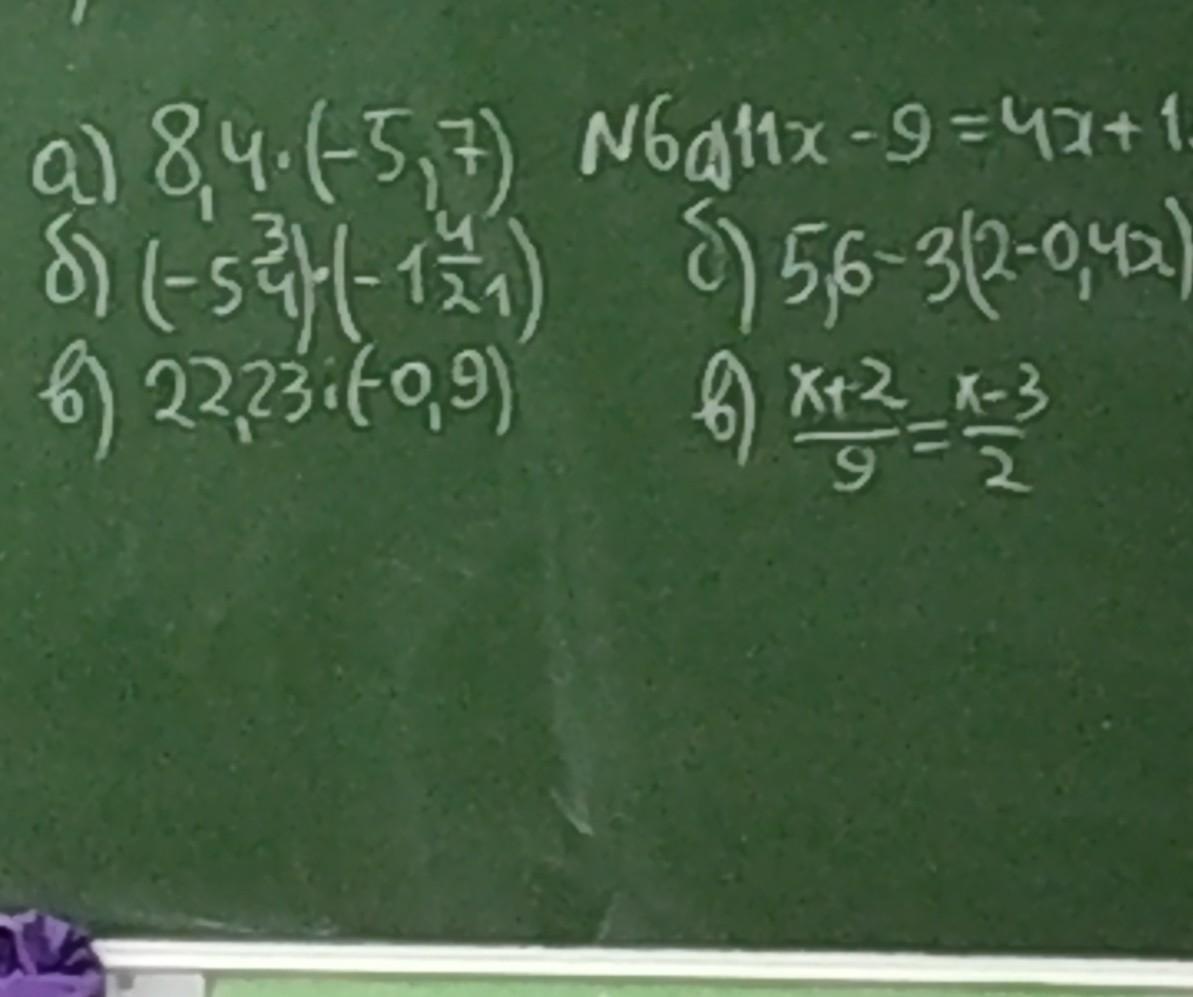 а) 8,4·(-5,7)
б) (-5 3/4)·(-1 4/21)
в) 22,23:(-0,9)
N6 а) 11x - 9 = 4x + 1
б) 5,6 - 3(2-0,4x)
в) x+2/9 = x-3/2